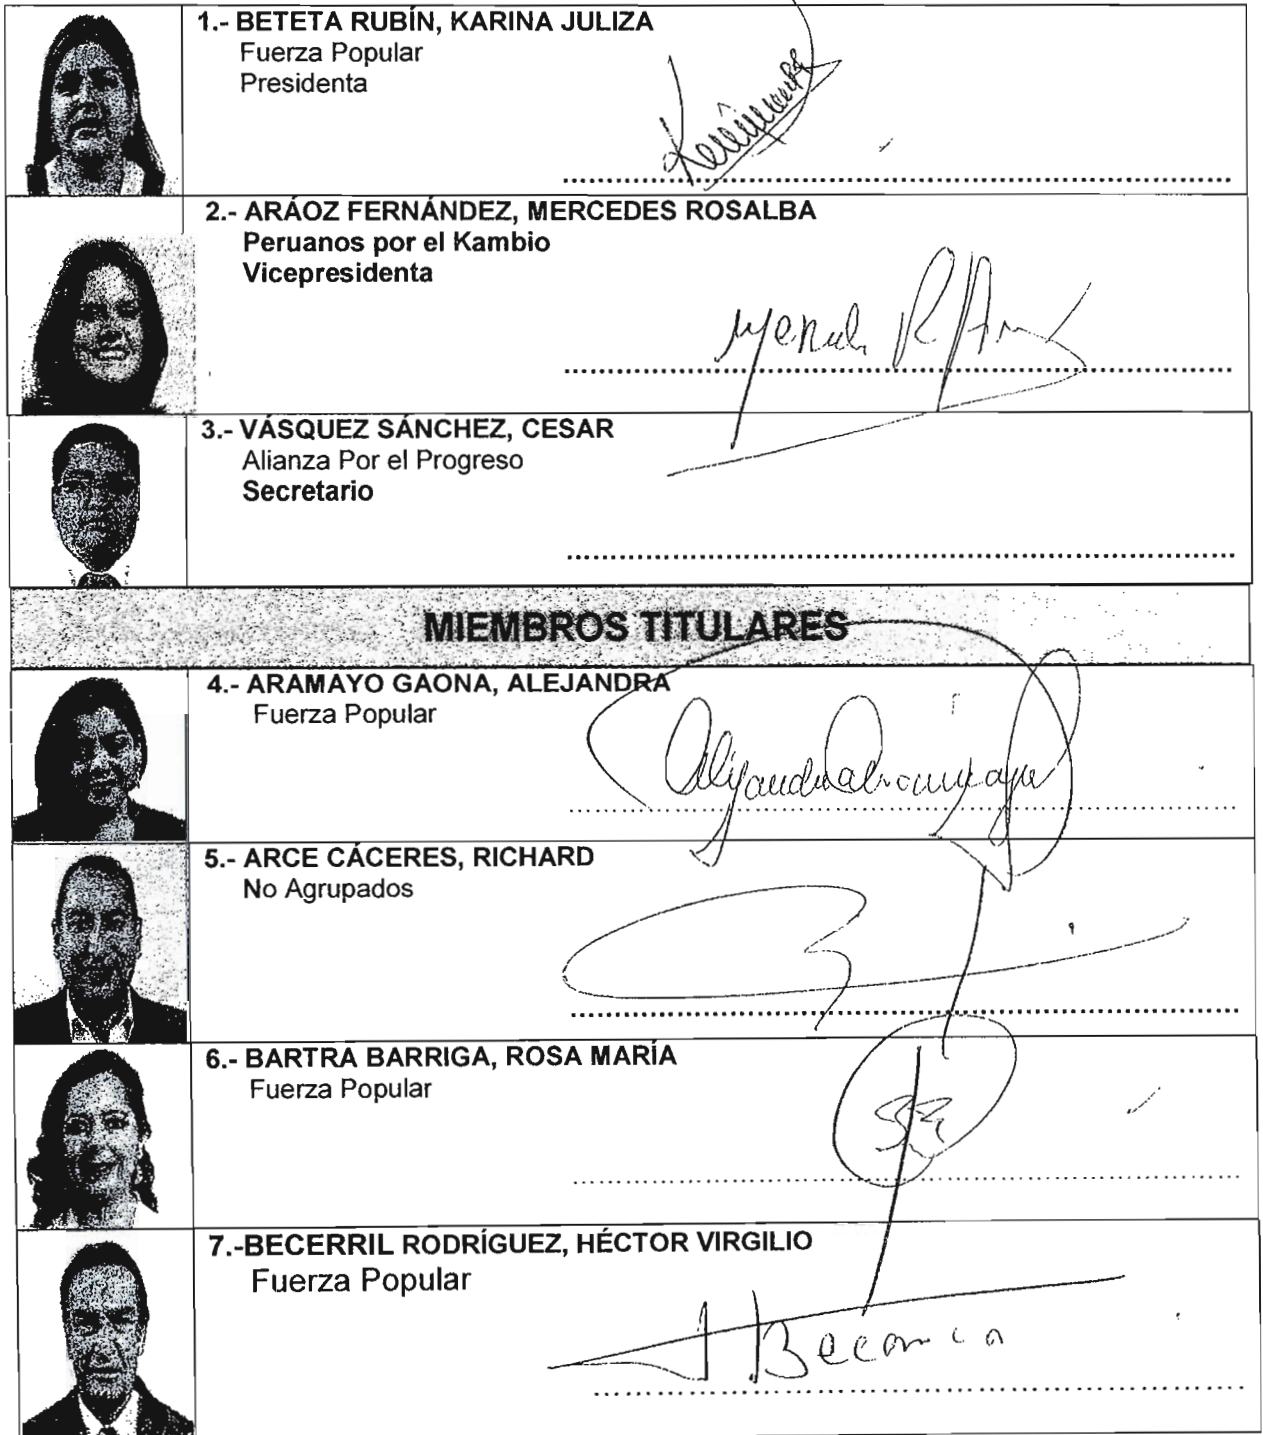 1.- BETETA RUBÍN, KARINA JULIZA
Fuerza Popular
Presidenta
2.- ARÁOZ FERNÁNDEZ, MERCEDES ROSALBA
Peruanos por el Kambio
Vicepresidenta
3.- VÁSQUEZ SÁNCHEZ, CESAR
Alianza Por el Progreso
Secretario
MIEMBROS TITULARES
4.- ARAMAYO GAONA, ALEJANDRA
Fuerza Popular
5.- ARCE CÁCERES, RICHARD
No Agrupados
6.- BARTRA BARRIGA, ROSA MARÍA
Fuerza Popular
7.-BECERRIL RODRÍGUEZ, HÉCTOR VIRGILIO
Fuerza Popular